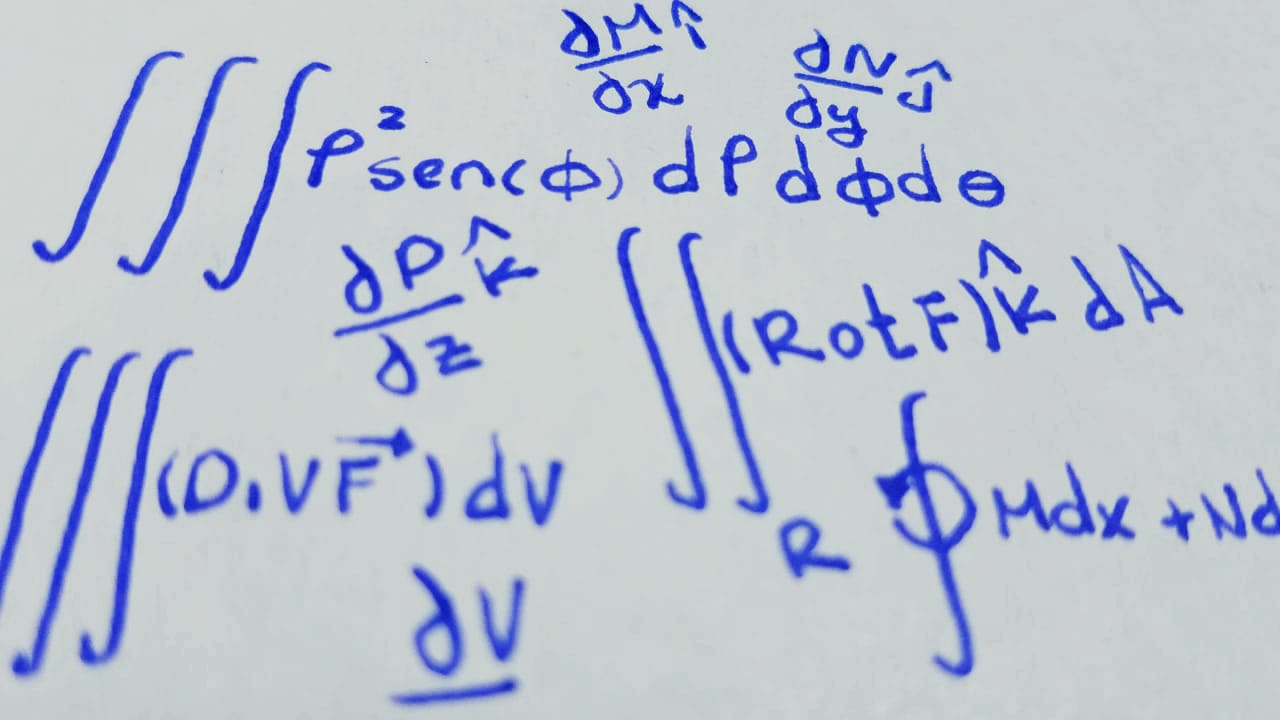 ∂M/∂x î ∂N/∂y ĵ
∫∫∫ ρ² sen(φ) dρ dφ dθ
∂P/∂z k̂
∫∫_R (Rot F) k̂ dA
∫∫∫ (D.VF⃗) dV
∮ Mdx + Nd
∂V